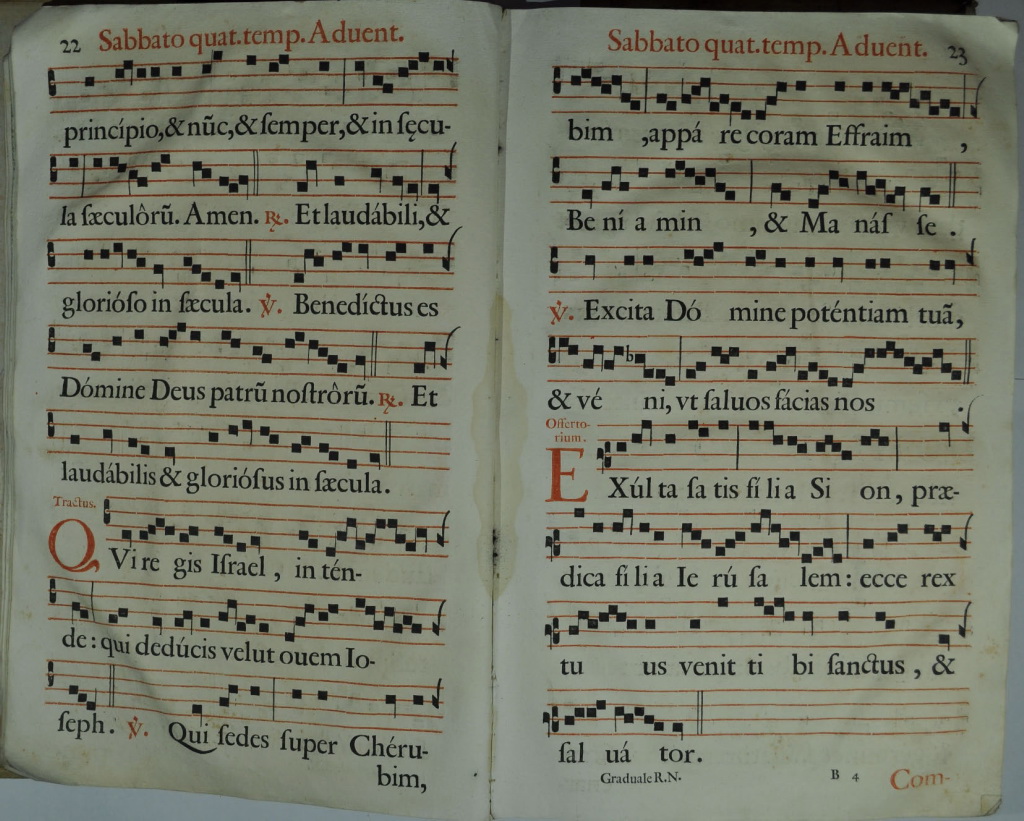 22 Sabbato quat.temp. Aduent.
princípio,& nũc,& ſemper,& in ſęcu-
la ſæculôrũ. Amen. ℟. Et laudábili,&
glorióſo in ſæcula. ℣. Benedíctus es
Dómine Deus patrũ noſtrôrũ. ℟. Et
laudábilis & glorióſus in ſæcula.
Tractus.
QVi re gis Iſrael , in tén-
de: qui dedúcis velut ouem Io-
ſeph. ℣. Qui ſedes ſuper Chéru-
bim,
Sabbato quat.temp. Aduent. 23
bim ,appá re coram Effraim ,
Be ní a min , & Ma náſ ſe .
℣. Excita Dó mine poténtiam tuã,
& vé ni, vt ſaluos fácias nos .
Offerto-
rium.
EXúl ta ſa tis fi li a Si on, præ-
dica fi li a Ie rú ſa lem: ecce rex
tu us venit ti bi ſanctus , &
ſal uá tor.
Graduale R.N. B 4 Com-